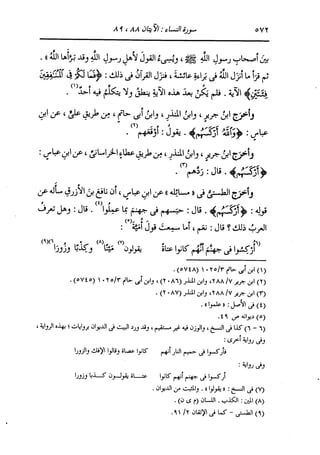 ٥٧٢ سورة النساء : الآيتان ٨٨ ، ٨٩
بين أصحابِ رسولِ اللَّهِ ﷺ ، ويُسىءُ القولَ لأهلِ رسولِ اللَّهِ وقد برَّأها اللَّهُ » .
ثم قرَأ ما أنزَل اللَّهُ فى براءةِ عائشةَ ، فنزَل القرآنُ فى ذلك : ﴿ فَمَا لَكُمْ فِى ٱلْمُنَٰفِقِينَ
فِئَتَيْنِ ﴾ الآية . فلم يَكُنْ بعدَ هذه الآيةِ يَنطِقُ ولا يتكلَّمُ فيه أحدٌ(١) .
وأخرَج ابنُ جريرٍ ، وابنُ المنذرِ ، وابنُ أبى حاتمٍ ، من طريقِ علىٍّ ، عن ابنِ
عباسٍ : ﴿ وَٱللَّهُ أَرْكَسَهُم ﴾ . يقولُ : أوقَعهم(٢) .
وأخرَج ابنُ جريرٍ ، وابنُ المنذرِ ، من طريقِ عطاءٍ الخراسانىِّ ، عن ابنِ عباسٍ :
﴿ أَرْكَسَهُم ﴾ . قال : ردَّهم(٣) .
وأخرَج الطستىُّ فى « مسائلِه » عن ابنِ عباسٍ ، أن نافعَ بنَ الأزرقِ سأَله عن
قولِه : ﴿ أَرْكَسَهُم ﴾ . قال : حبَسهم فى جهنمَ بما عمِلوا(٤) . قال : وهل تعرفُ
العربُ ذلك ؟ قال : نعم ، أما سمِعتَ قولَ أُميةَ(٥) :
(٦)أُرْكِسوا فى جهنمَ أنَّهم كانوا عتاةً يقولون(٧) مَيْنًا(٨) وكذبًا وزورًا(٦)(٩)
(١) ابن أبى حاتم ١٠٢٥/٣ (٥٧٤٨) .
(٢) ابن جرير ٢٨٨/٧ ، وابن المنذر (٢٠٨٦) ، وابن أبى حاتم ١٠٢٥/٣ (٥٧٤٥) .
(٣) ابن جرير ٢٨٨/٧ ، وابن المنذر (٢٠٨٧) .
(٤) فى الأصل : « علموا » .
(٥) ديوانه ص ٤٩ .
(٦ - ٦) كذا فى النسخ ، والوزن فيه غير مستقيم ، وقد ورد البيت فى الديوان بروايات ؛ بهذه الرواية ،
وفى رواية أخرى :
فأركسوا فى حميم النار أنهم كانوا عصاة وقالوا الإفك والزورا
وفى رواية :
أركسوا فى جهنم أنهم كانوا عتـــاة يقولـــون كـــذبا وزورا
(٧) فى النسخ : « يقولوا » . والمثبت من الديوان .
(٨) المين : الكذب . اللسان (م ى ن) .
(٩) الطستى - كما فى الإتقان ٩١/٢ .